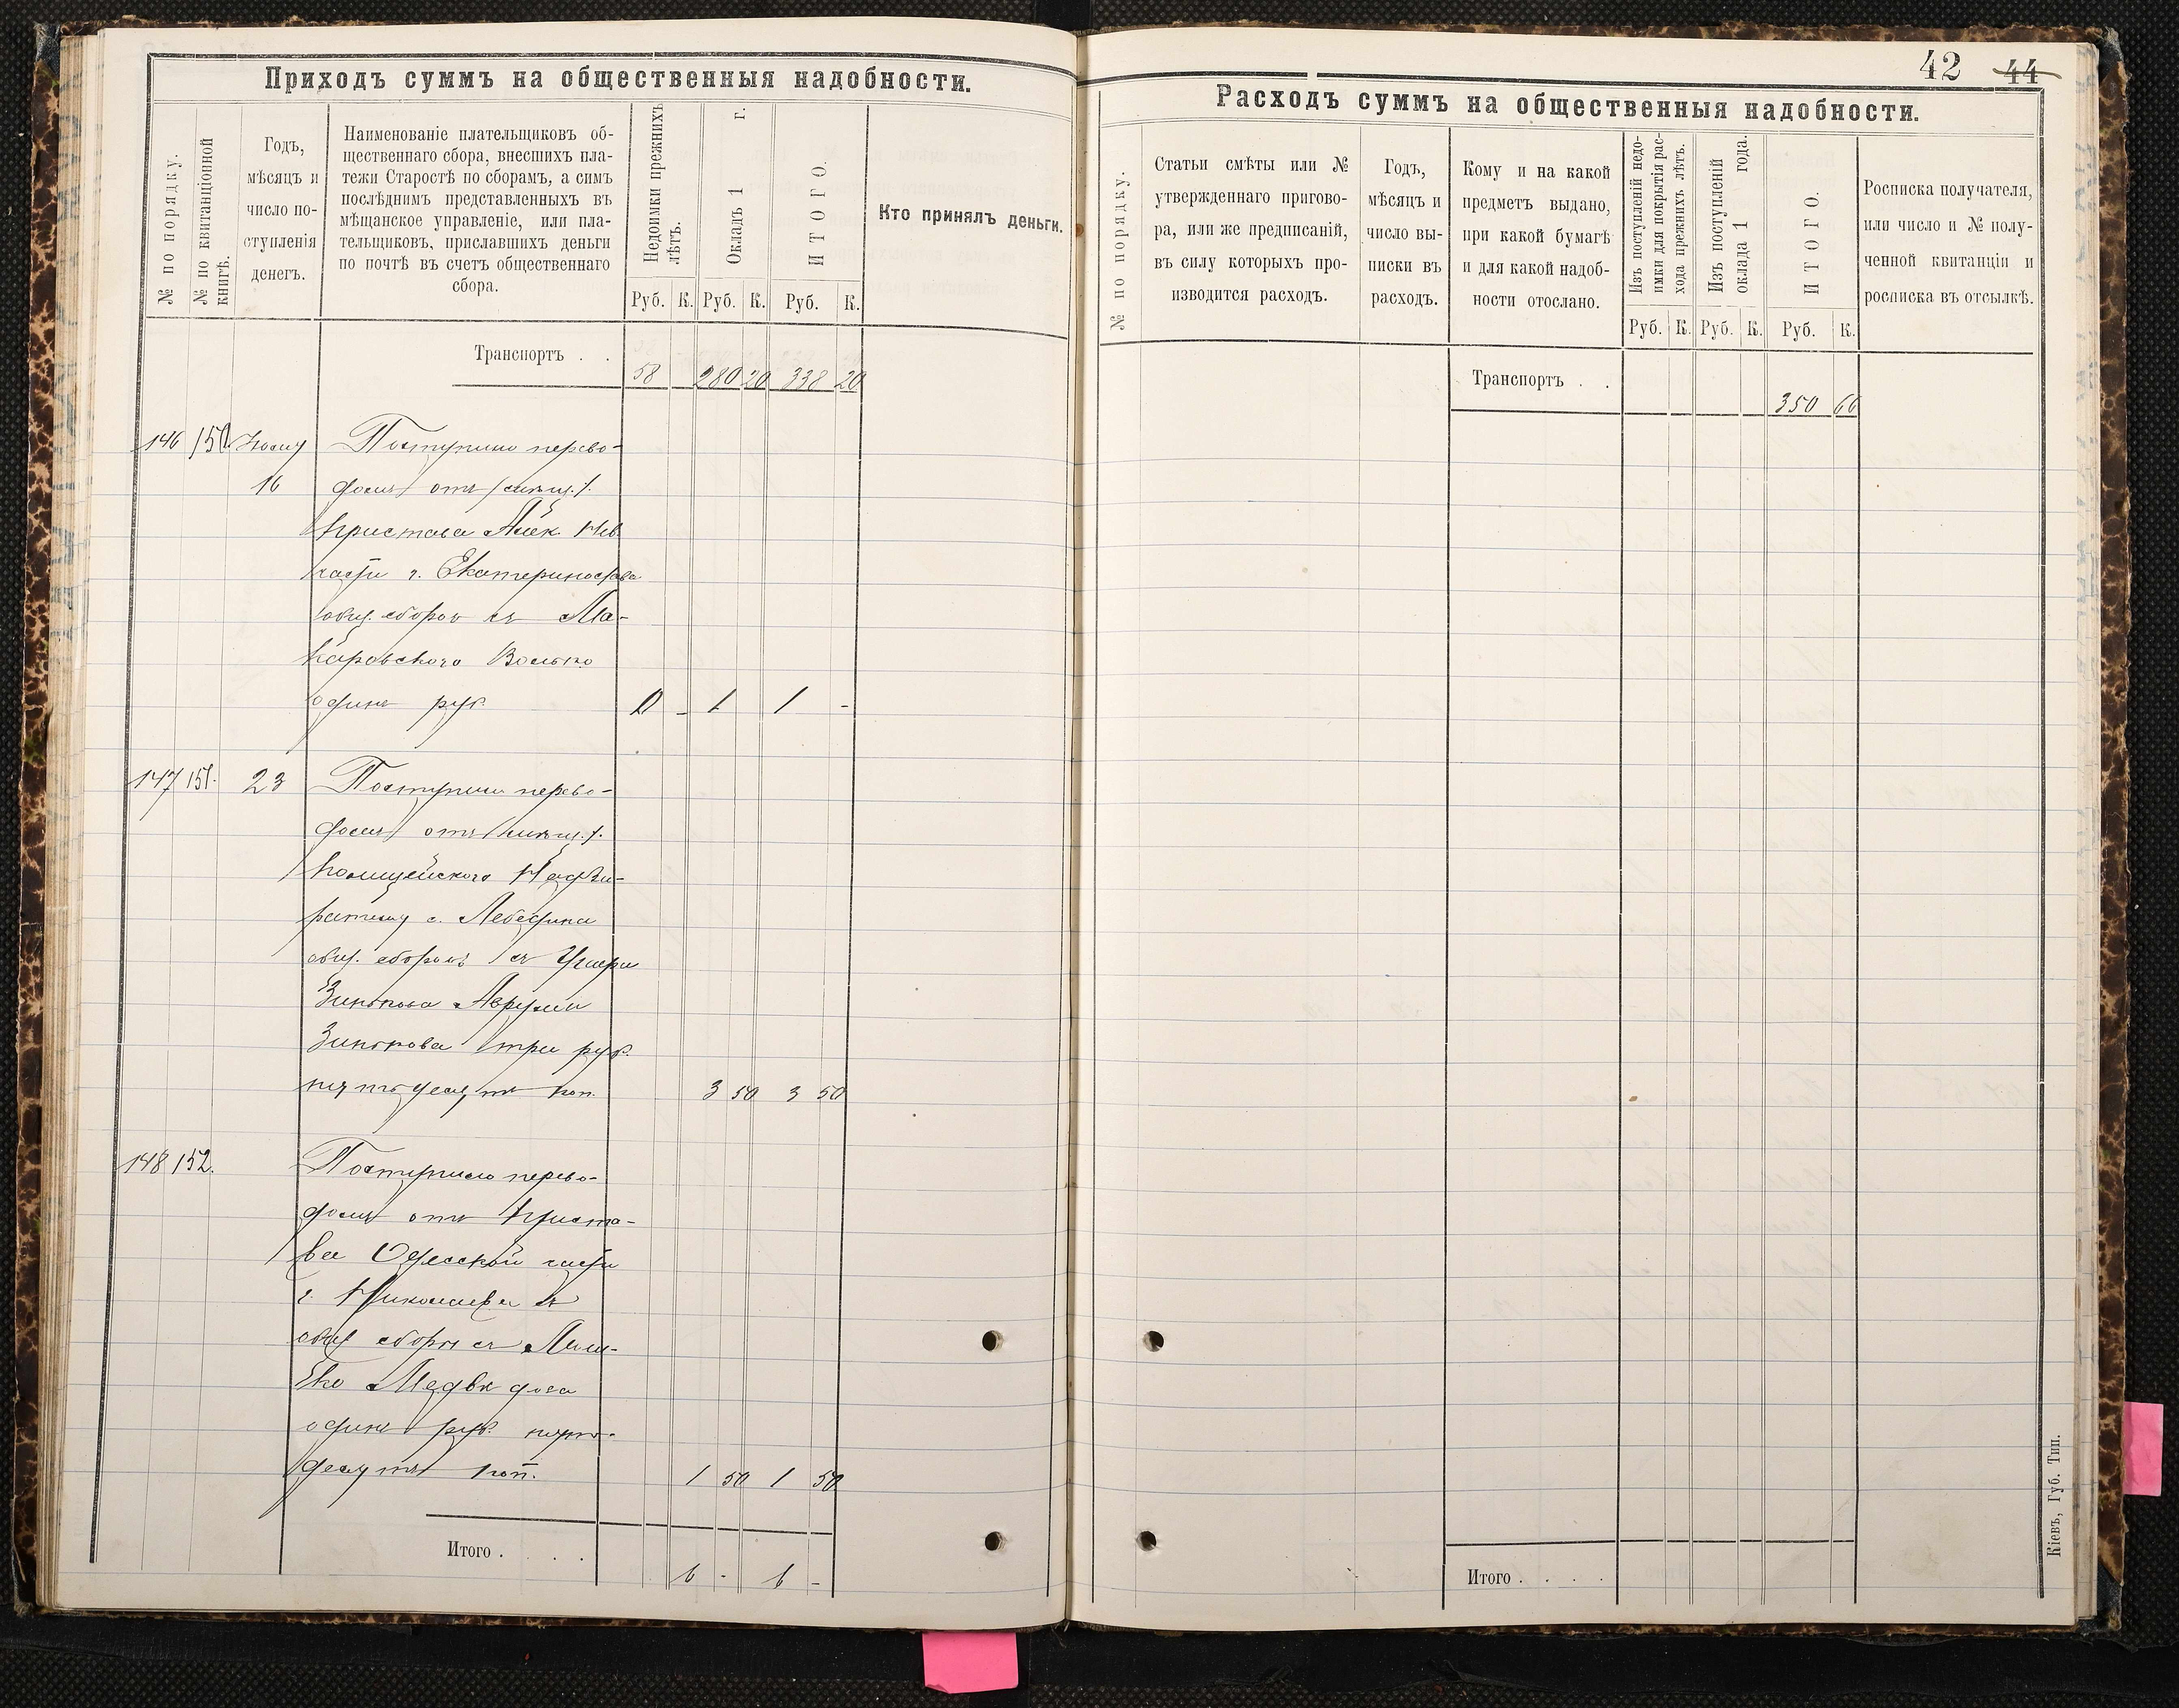 Приходъ суммъ на общественныя надобности.
№ по порядку.
№ по квитанціонной книгѣ.
Годъ,
мѣсяцъ и
число по-
ступленія
денегъ.
Наименованіе плательщиковъ об-
щественнаго сбора, внесшихъ пла-
тежи Старостѣ по сборамъ, а симъ
послѣднимъ представленныхъ въ
мѣщанское управленіе, или пла-
тельщиковъ, приславшихъ деньги
по почтѣ въ счетъ общественнаго
сбора.
Недоимки прежнихъ
лѣтъ.
Окладъ 1 г.
ИТОГО.
Кто принялъ деньги.
Руб. К. Руб. К. Руб. К.
Транспортъ . .
58 280 20 338 20
146 150
Поступило перево-
16 домъ отъ
Пристава Алек. Нев.
части г. Екатеринослава
общ. сборов съ Ма-
каровского
одинъ руб. 1 1 -
147 151. 23 Поступило перево-
домъ отъ
Полицейского Надзи-
рателя г. Лебедина
общ. сборов съ
Зинькова
Зинькова три руб.
пятьдесятъ коп. 3 50 3 50
148 152. Поступило перево-
домъ отъ Приста-
ва Одесской части
г. Николаева
общ сборы съ
Медвѣдова
одинъ руб. пять-
десятъ коп. 1 50 1 50
Итого . . . .
6 - 6 -
42 44
Расходъ суммъ на общественныя надобности.
№ по порядку.
Статьи смѣты или №
утвержденнаго пригово-
ра, или же предписаній,
въ силу которыхъ про-
изводится расходъ.
Годъ,
мѣсяцъ и
число вы-
писки въ
расходъ.
Кому и на какой
предметъ выдано,
при какой бумагѣ
и для какой надоб-
ности отослано.
Изъ поступленій недо-
имки для покрытія рас-
хода прежнихъ лѣтъ.
Изъ поступленій
оклада 1 года.
ИТОГО.
Росписка получателя,
или число и № полу-
ченной квитанціи и
росписка въ отсылкѣ.
Руб. К. Руб. К. Руб. К.
Транспортъ . .
350 66
Итого . . . .
Кіевъ, Губ. Тип.